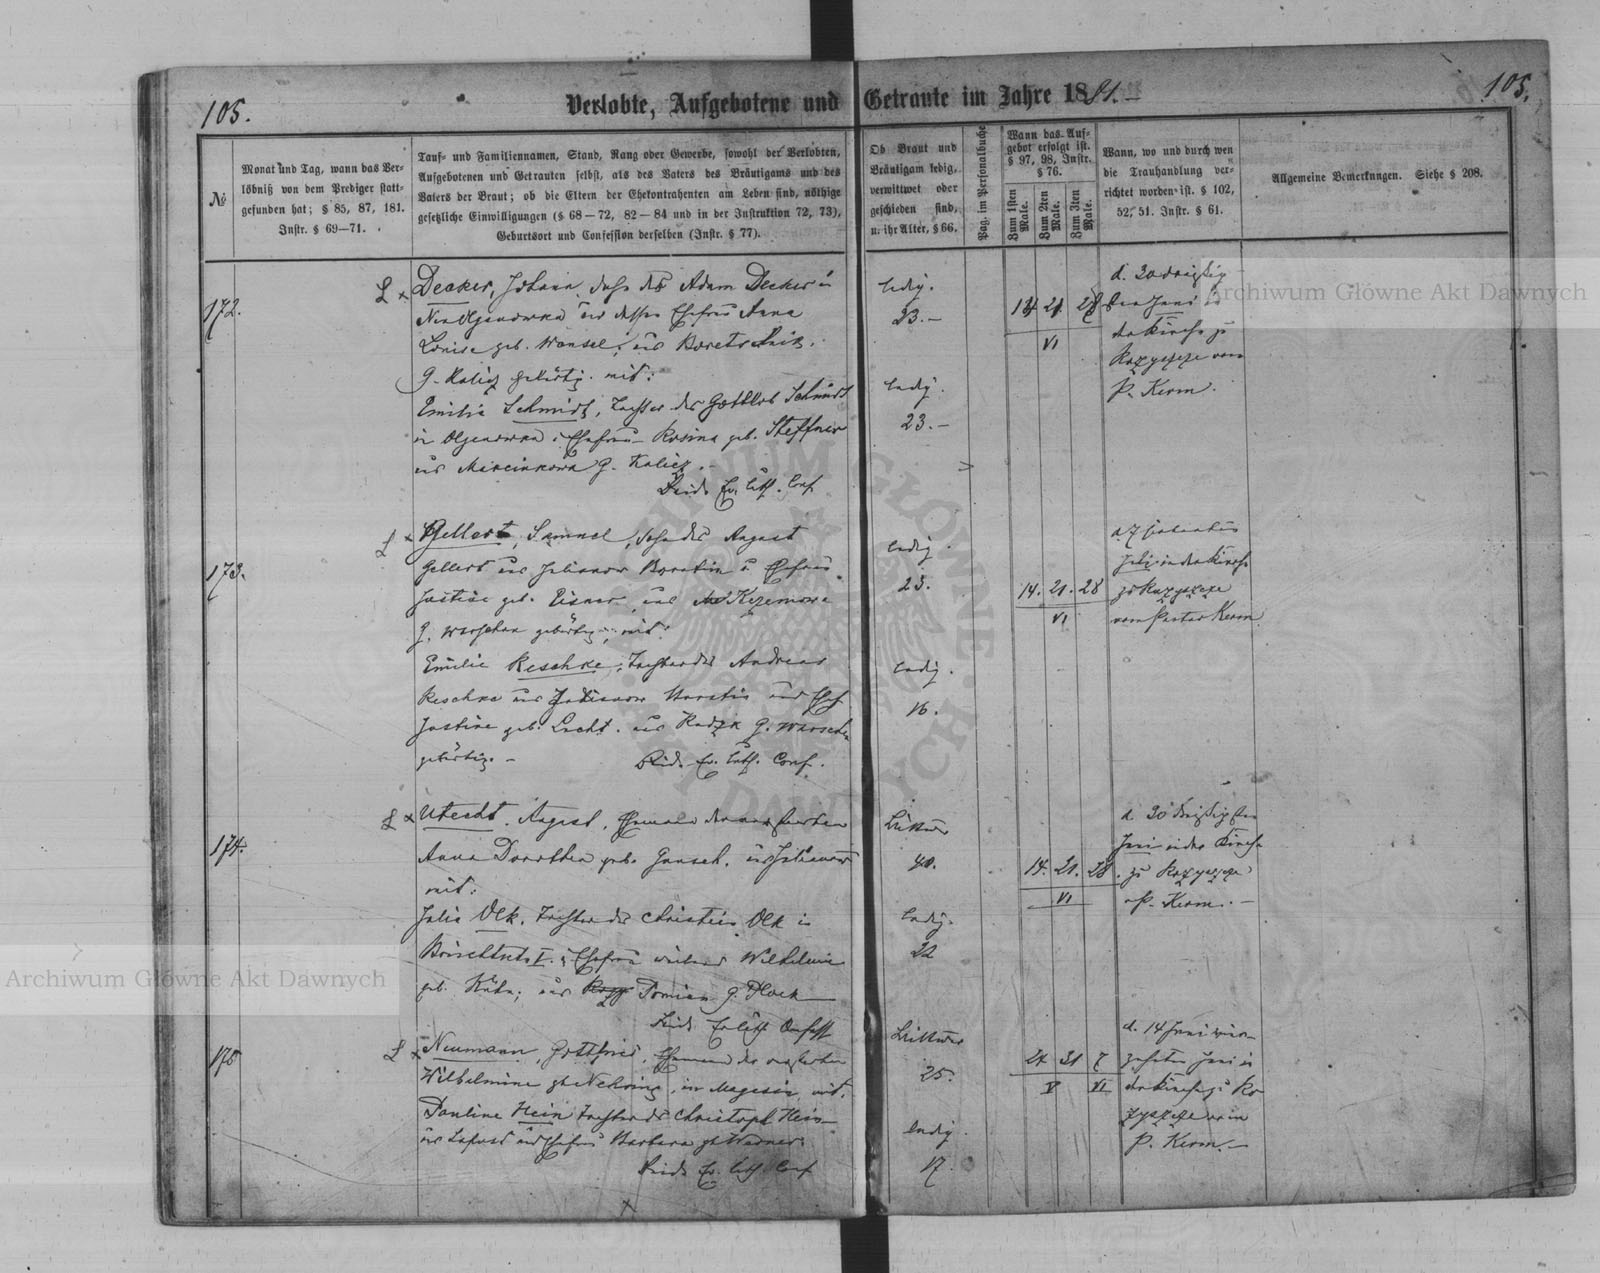 105.
Verlobte, Aufgebotene und Getraute im Jahre 1881.-
105.
№
Monat und Tag, wann das Ver-
löbniß von dem Prediger statt-
gefunden hat; § 85, 87, 181.
Instr. § 69—71.
Tauf- und Familiennamen, Stand, Rang oder Gewerbe, sowohl der Verlobten,
Aufgebotenen und Getrauten selbst, als des Vaters des Bräutigams und des
Vaters der Braut; ob die Eltern der Ehekontrahenten am Leben sind, nöthige
gesetzliche Einwilligungen (§ 68—72, 82—84 und in der Instruktion 72, 73),
Geburtsort und Confession derselben (Instr. § 77).
Ob Braut und
Bräutigam ledig,
verwittwet oder
geschieden sind,
u. ihr Alter, § 66.
Pag. im Personalbuche
Wann das Auf-
gebot erfolgt ist.
§ 97, 98, Instr.
§ 76.
Zum 1sten Male.
Zum 2ten Male.
Zum 3ten Male.
Wann, wo und durch wen
die Trauhandlung ver-
richtet worden ist. § 102,
52, 51. Instr. § 61.
Allgemeine Bemerkungen. Siehe § 208.
172.
Decker, Johann, Sohn des Adam Decker in
und dessen Ehefrau Anna
Louise geb. Wensel, aus
G. Kalisz gebürtig. mit:
Emilie Schmidt, Tochter des Gottlob Schmidt
in Olganowka u Ehefrau Rosina geb. Steffner
aus Marcinkowa G. Kalisz.
Beide Ev. luth. Conf.
ledig.
23.-
ledig.
23.-
14 21 28
VI
d. 30 dreißig
sten Juni in
der Kirche zu
Rozyszcze vom
P. Kerm.
173.
Gellert, Samuel, Sohn des August
Gellert aus Julianow Boratin u. Ehefrau
Justine geb. Eisner aus
G. Warschau gebürtig mit:
Emilie Reschke, Tochter des Andreas
Reschke aus Julianow Boratin und Ehef
Justine geb. Lecht. aus G. Warschau
gebürtig. -
Beide Ev. luth. Conf.
ledig.
23.
ledig.
16.
14. 21. 28
VI
d 7 siebenten
Juli in der Kirche
zu Rozyszcze
vom Pastor Kerm
174.
Utecht, August, Ehemann der verstorbenen
Anna Dorothea geb. in Julianow
mit:
Julie Olk, Tochter des Christian Olk in
I. u Ehefrau Wilhelmine
geb. Kühn; aus G. Plock
Beide Ev luth Conf
Wittwer
40.
ledig.
22
14. 21. 28.
VI
d. 30 dreißigsten
Juni in der Kirche
zu Rozyszcze
P. Kerm. -
175
Neumann, Gottfried, Ehemann der verstorbenen
Wilhelmine geb Nehring, in mit.
Pauline Hein Tochter des Christoph Hein
und Ehefrau Barbara geb Werner.
Beide Ev. luth Conf
Wittwer
25.
ledig.
17.
24 31 7
V VI
d. 14 Juni vier-
zehnten Juni in
der Kirche zu Ro-
zyszcze vom
P. Kerm. -
Archiwum Główne Akt Dawnych
Archiwum Główne Akt Dawnych
ARCHIWUM GŁÓWNE AKT DAWNYCH